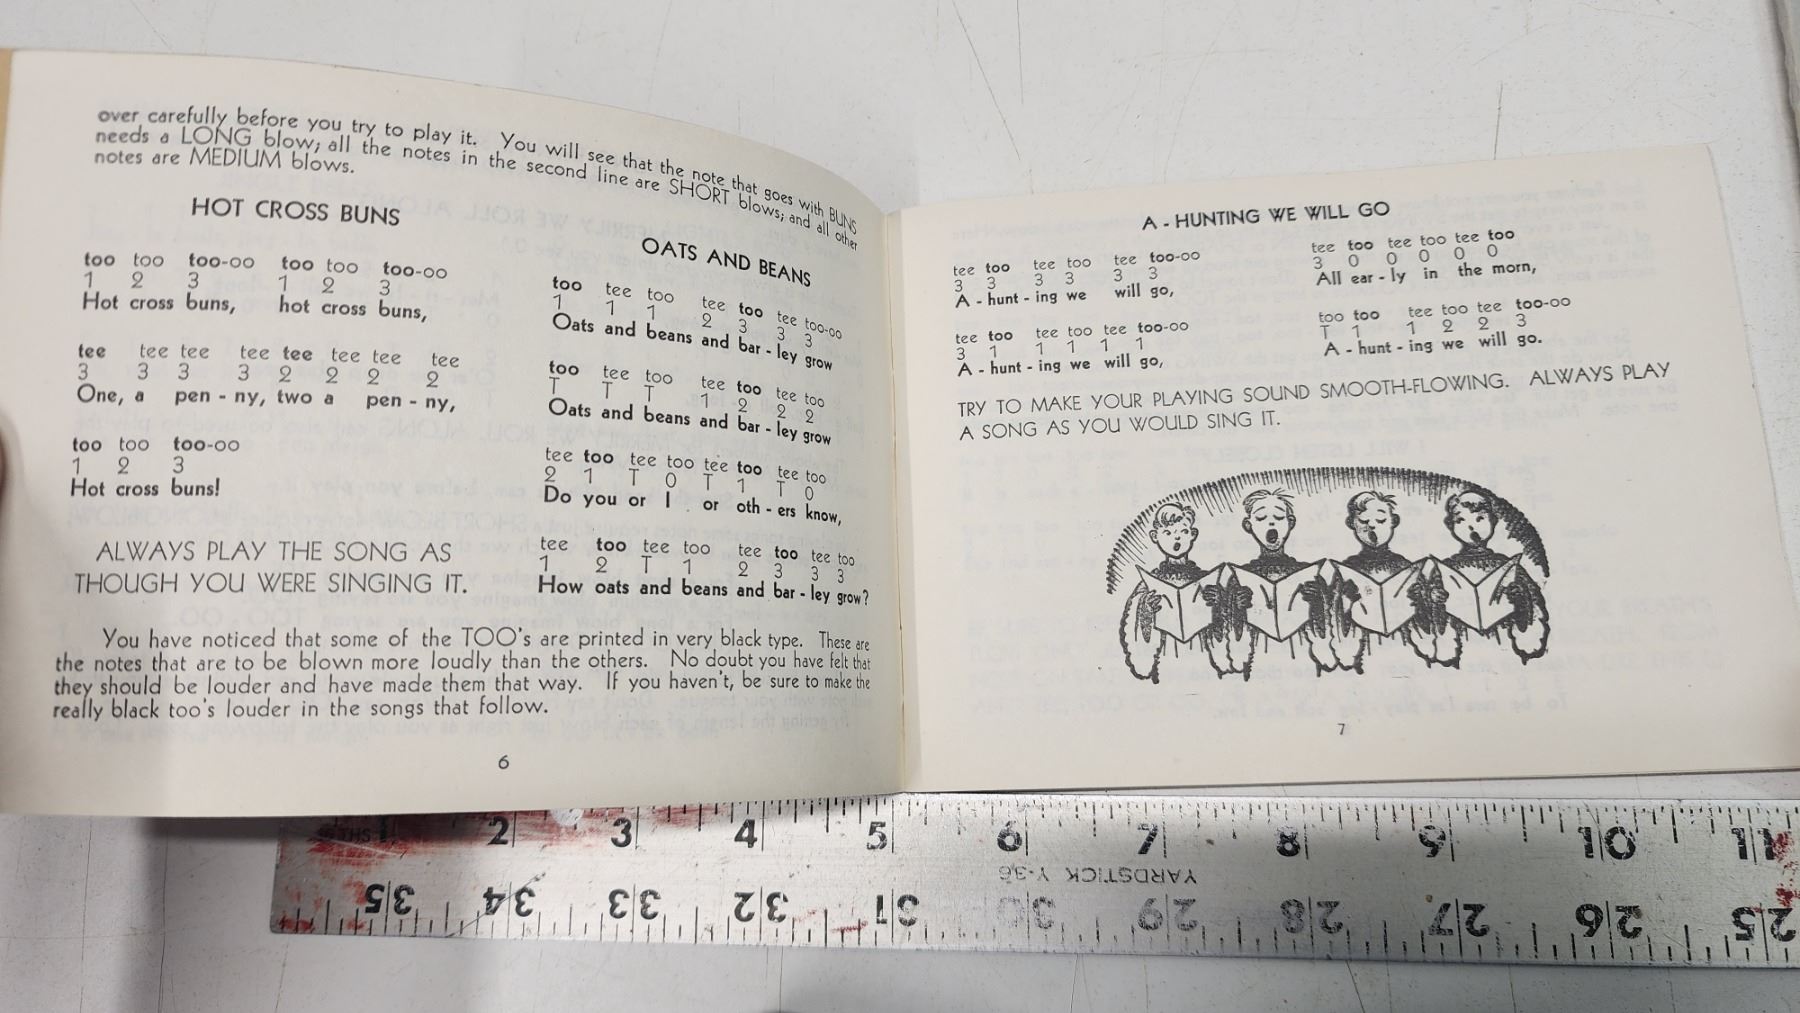 over carefully before you try to play it. You will see that the note that goes with BUNS
needs a LONG blow; all the notes in the second line are SHORT blows; and all other
notes are MEDIUM blows.
HOT CROSS BUNS
too too too-oo too too too-oo
1 2 3 1 2 3
Hot cross buns, hot cross buns,
tee tee tee tee tee tee tee tee
3 3 3 3 2 2 2 2
One, a pen - ny, two a pen - ny,
too too too-oo
1 2 3
Hot cross buns!
ALWAYS PLAY THE SONG AS
THOUGH YOU WERE SINGING IT.
OATS AND BEANS
too tee too tee too tee too-oo
1 1 1 2 3 3 3
Oats and beans and bar - ley grow
too tee too tee too tee too
T T T 1 2 2 2
Oats and beans and bar - ley grow
tee too tee too tee too tee too
2 1 T 0 T 1 T 0
Do you or I or oth - ers know,
tee too tee too tee too tee too
1 2 T 1 2 3 3 3
How oats and beans and bar - ley grow?
You have noticed that some of the TOO's are printed in very black type. These are
the notes that are to be blown more loudly than the others. No doubt you have felt that
they should be louder and have made them that way. If you haven't, be sure to make the
really black too's louder in the songs that follow.
6
A - HUNTING WE WILL GO
tee too tee too tee too-oo
3 3 3 3 3 3
A - hunt - ing we will go,
tee too tee too tee too
3 0 0 0 0 0
All ear - ly in the morn,
tee too tee too tee too-oo
3 1 1 1 1 1
A - hunt - ing we will go,
too too tee too tee too-oo
T 1 1 2 2 3
A - hunt - ing we will go.
TRY TO MAKE YOUR PLAYING SOUND SMOOTH-FLOWING. ALWAYS PLAY
A SONG AS YOU WOULD SING IT.
7
16 THS 1 2 3 4 5 6 7 8 9 10 11
YARDSTICK Y-36
35 34 33 32 31 30 29 28 27 26 25